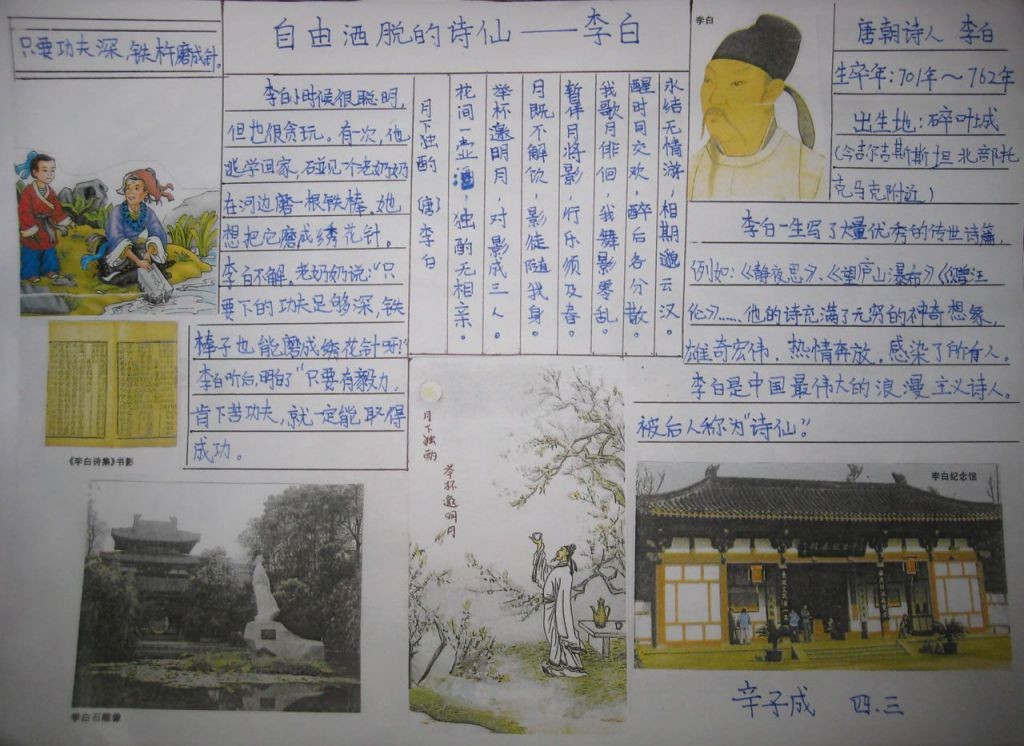 只要功夫深,铁杵磨成针。
自由洒脱的诗仙——李白
李白小时候很聪明,
但也很贪玩。有一次,他
逃学回家,碰见一个老奶奶
在河边磨一根铁棒。她
想把它磨成绣花针。
李白不解。老奶奶说:“只
要下的功夫足够深,铁
棒子也能磨成绣花针呀!”
李白听后,明白了“只要有毅力,
肯下苦功夫,就一定能取得
成功。
《李白诗集》书影
李白石雕像
永结无情游,相期邈云汉。
醒时同交欢,醉后各分散。
我歌月徘徊,我舞影零乱。
暂伴月将影,行乐须及春。
月既不解饮,影徒随我身。
举杯邀明月,对影成三人。
花间一壶酒,独酌无相亲。
月下独酌 (唐) 李白
月下独酌
举杯邀明月
李白
唐朝诗人 李白
生卒年:701年~762年
出生地:碎叶城
(今吉尔吉斯斯坦北部托
克马克附近)
李白一生写了大量优秀的传世诗篇,
例如:《静夜思》、《望庐山瀑布》《赠汪
伦》……他的诗充满了无穷的神奇想象,
雄奇宏伟,热情奔放,感染了所有人。
李白是中国最伟大的浪漫主义诗人。
被后人称为“诗仙。”
李白纪念馆
辛子成 四.三